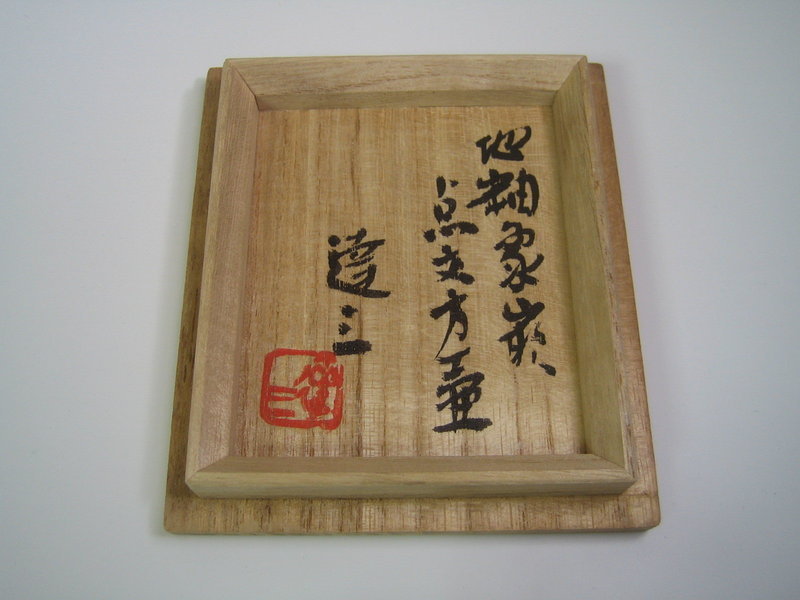 地釉象嵌
点文方壷
達三